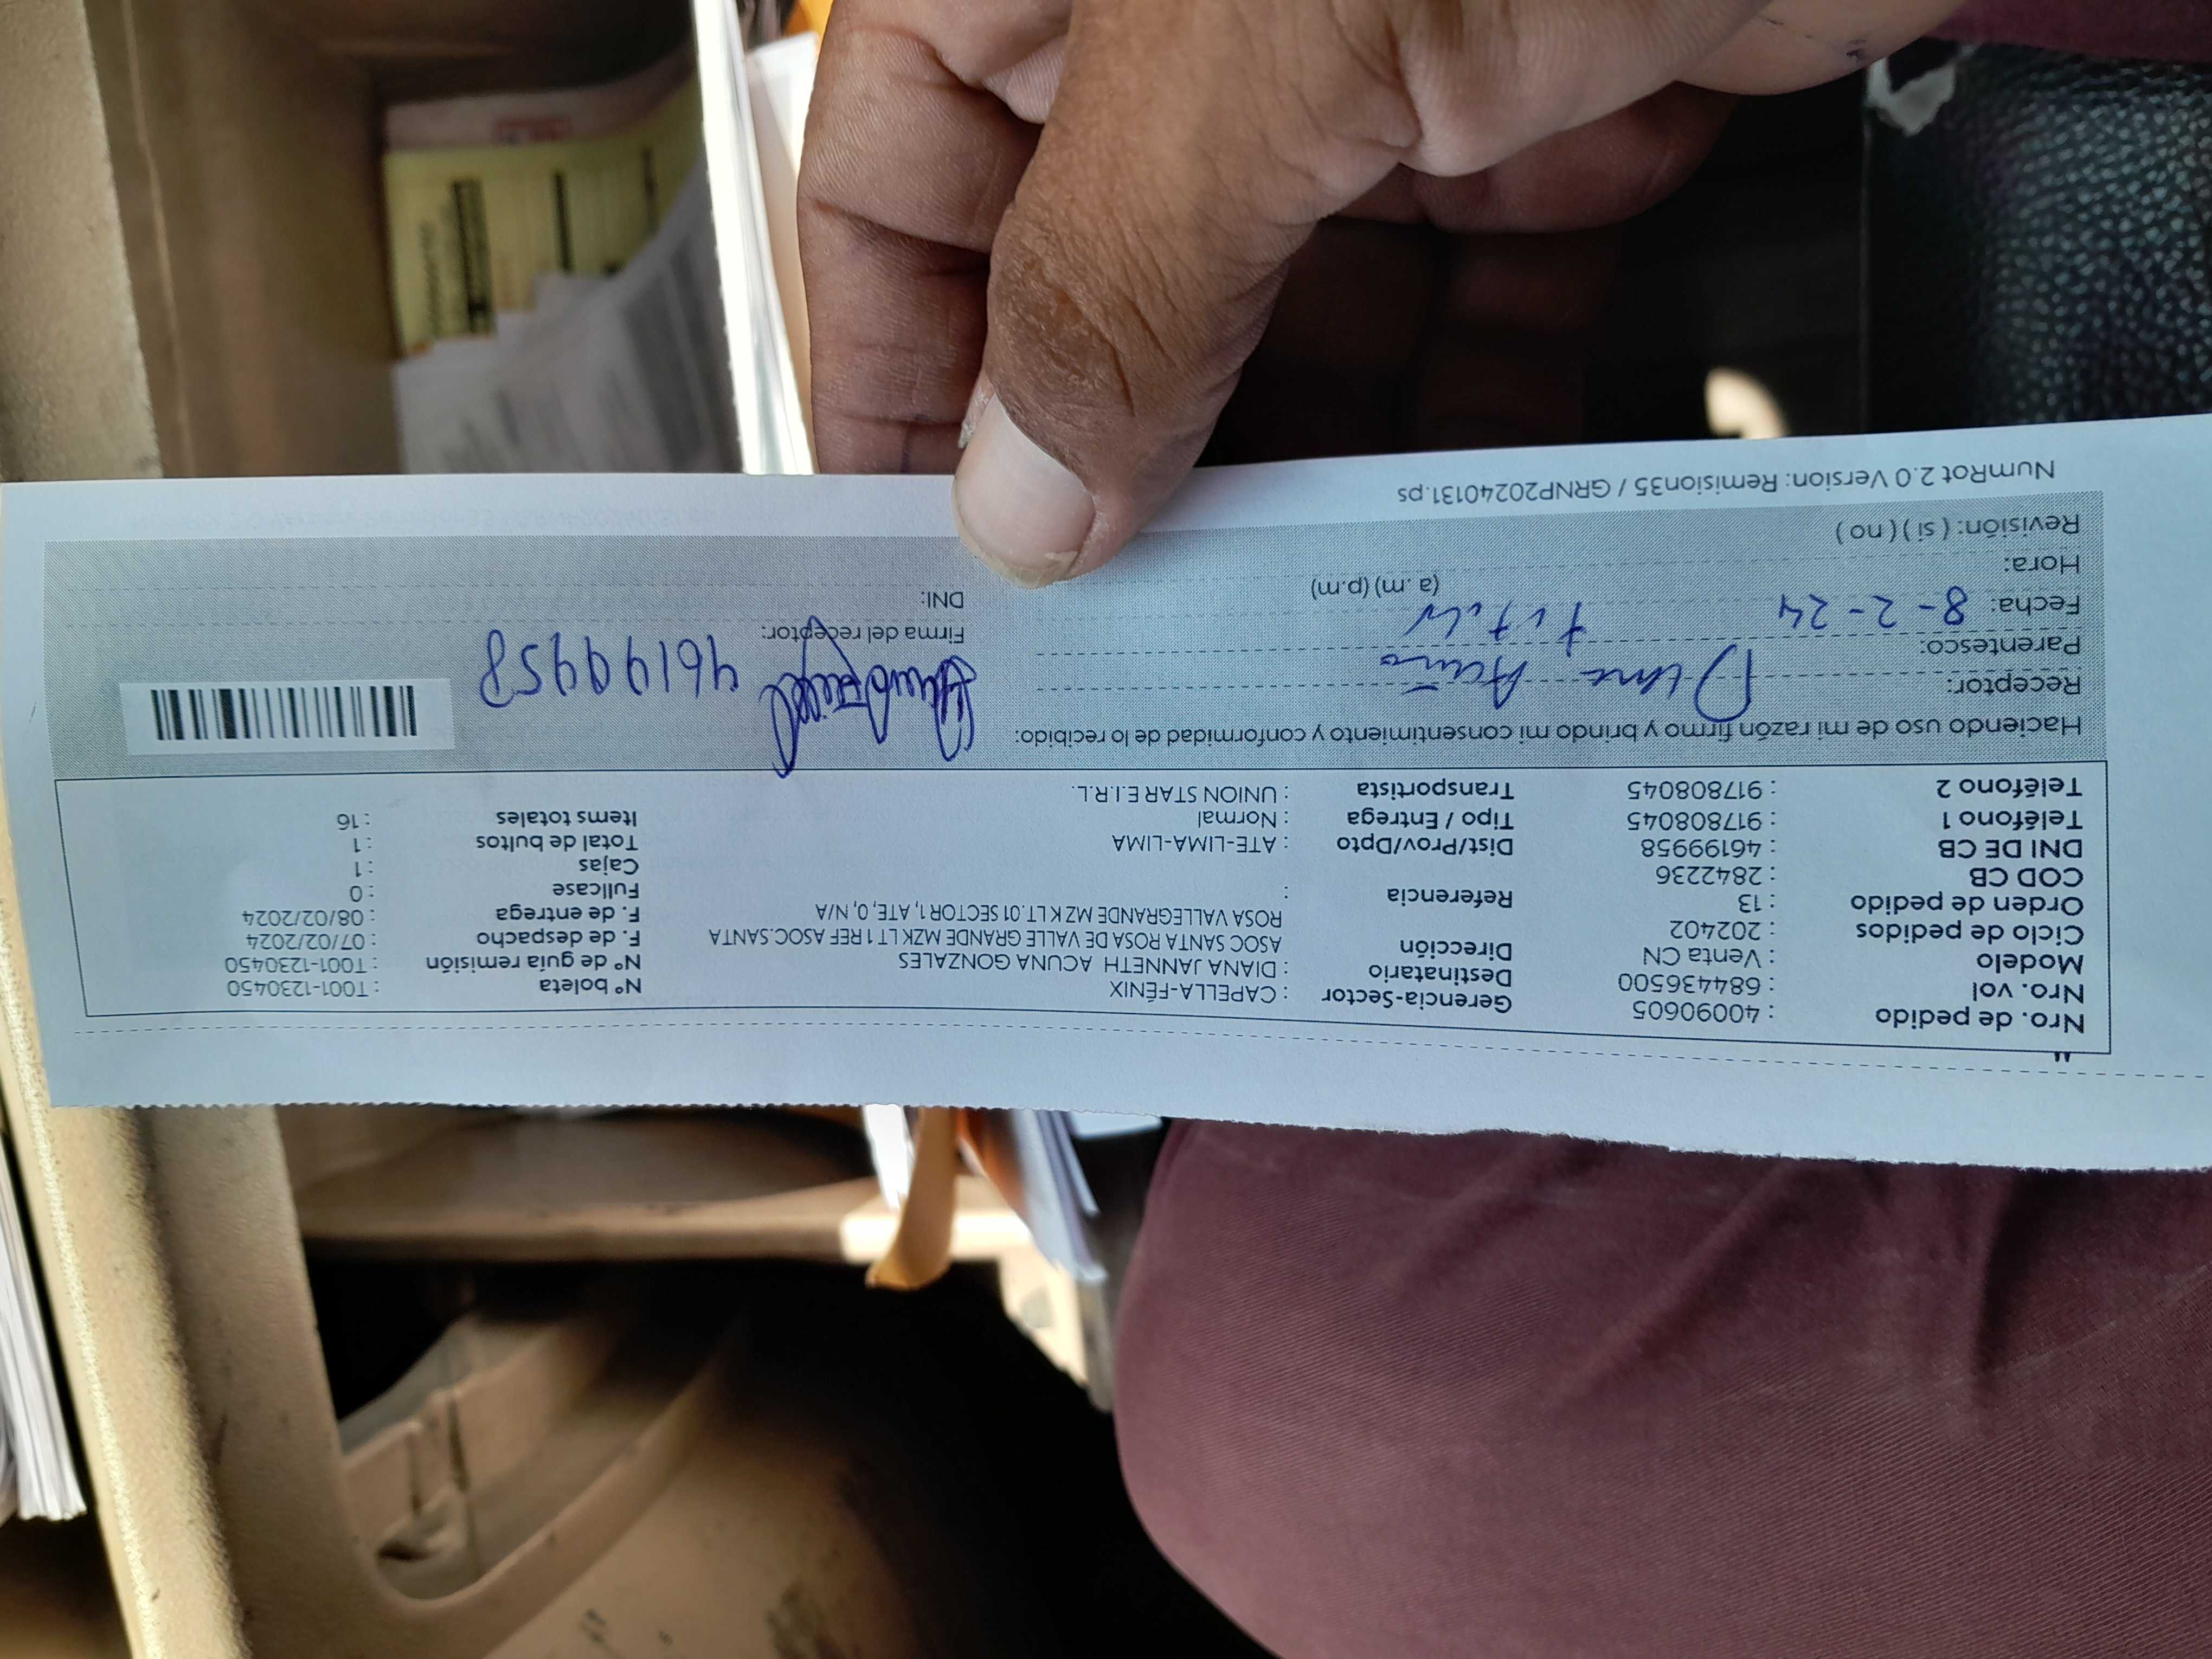 Nro. de pedido : 40090605 Gerencia-Sector : CAPELLA-FÉNIX Nº boleta : T001-1230450
Nro. vol : 684436500 Destinatario : DIANA JANNETH ACUNA GONZALES Nº de guía remisión : T001-1230450
Modelo : Venta CN Dirección ASOC SANTA ROSA DE VALLE GRANDE MZK LT 1 REF ASOC.SANTA F. de despacho : 07/02/2024
Ciclo de pedidos : 202402 ROSA VALLEGRANDE MZ K LT.01 SECTOR 1, ATE, 0, N/A F. de entrega : 08/02/2024
Orden de pedido : 13 Referencia : Fullcase : 0
COD CB : 2842236 Cajas : 1
DNI DE CB : 46199958 Dist/Prov/Dpto : ATE-LIMA-LIMA Total de bultos : 1
Teléfono 1 : 917808045 Tipo / Entrega : Normal Items totales : 16
Teléfono 2 : 917808045 Transportista : UNION STAR E.I.R.L.
Haciendo uso de mi razón firmo y brindo mi consentimiento y conformidad de lo recibido:
Receptor: Diana Acuña
Parentesco: titular
Firma del receptor: 46199958
Fecha: 8-2-24
DNI:
Hora: (a.m) (p.m)
Revisión: ( si ) ( no )
NumRot 2.0 Version: Remision35 / GRNP20240131.ps